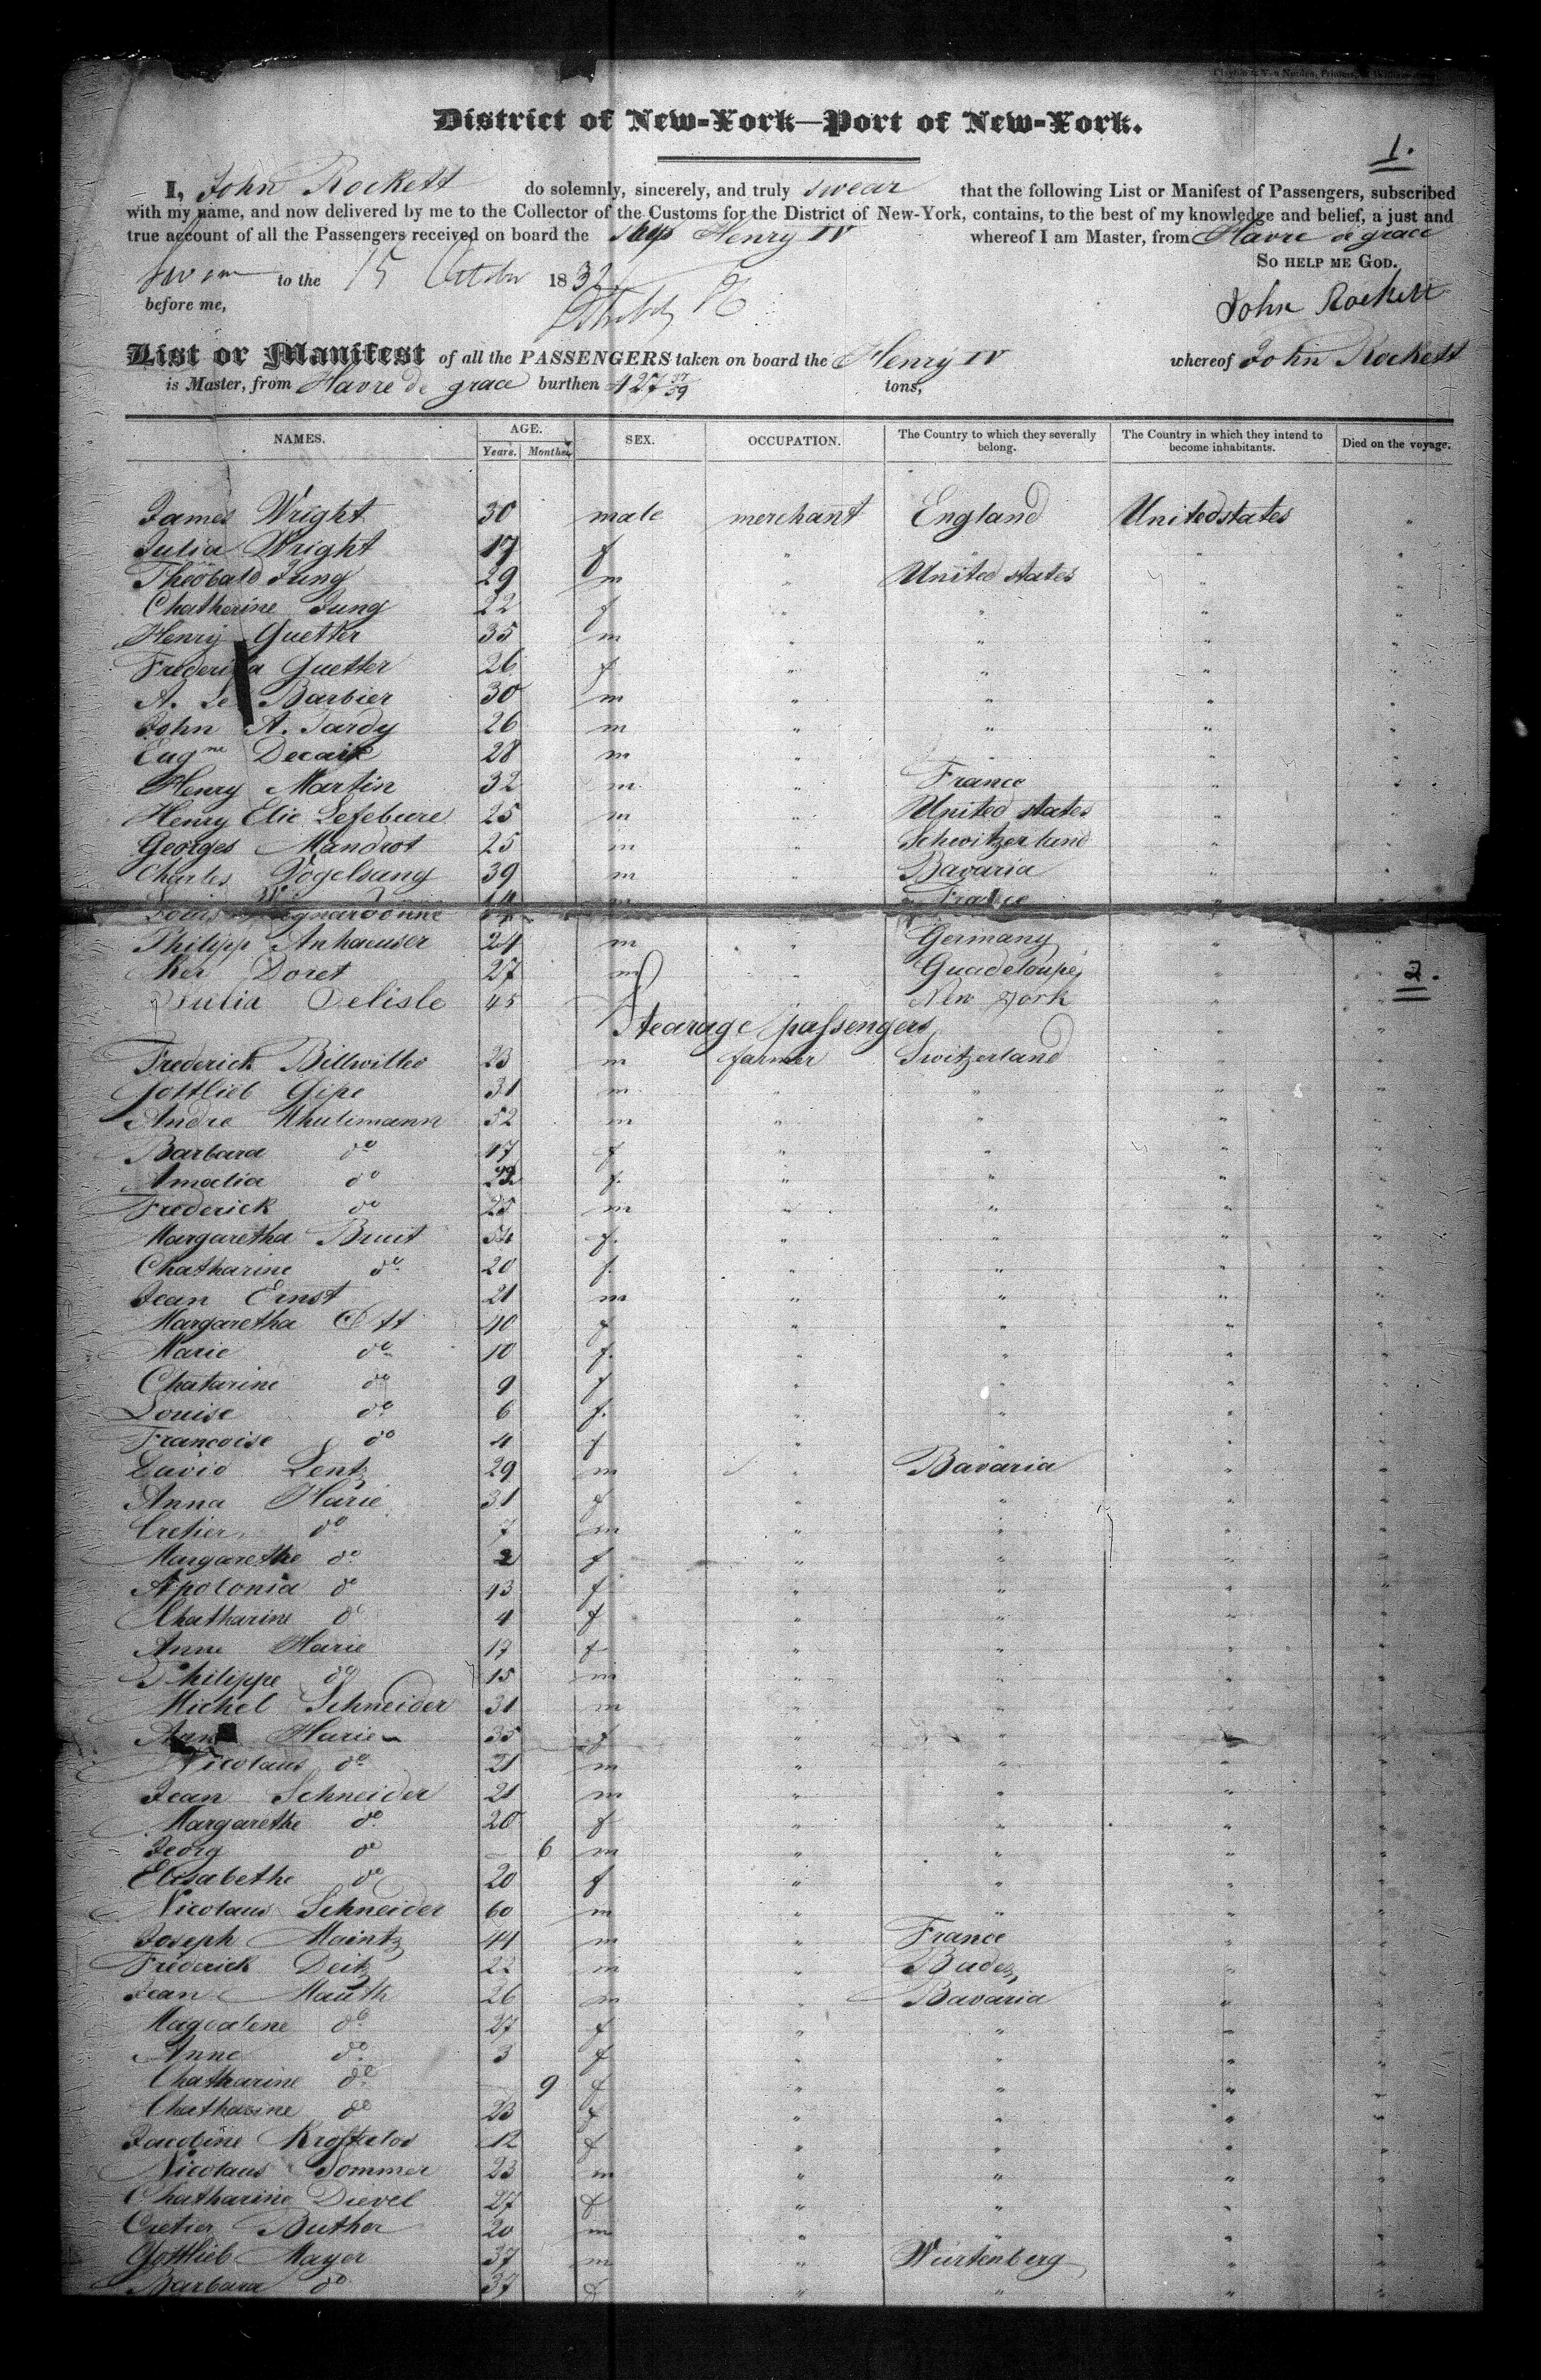 District of New-York—Port of New-York.
1.
I, John Rockett do solemnly, sincerely, and truly swear that the following List or Manifest of Passengers, subscribed
with my name, and now delivered by me to the Collector of the Customs for the District of New-York, contains, to the best of my knowledge and belief, a just and
true account of all the Passengers received on board the Ship Henry IV whereof I am Master, from Havre de grace
So help me God.
Sworn to the 15 October 1832
before me,
John Rockett
List or Manifest of all the PASSENGERS taken on board the Henry IV whereof John Rockett
is Master, from Havre de grace burthen 427 tons,
NAMES. AGE. Years. Months. SEX. OCCUPATION. The Country to which they severally belong. The Country in which they intend to become inhabitants. Died on the voyage.
James Wright 30 male merchant England United states "
Julia Wright 17 f " " "
Theobald Jung 29 m " United states " "
Chatherine Jung 22 f " " " "
Henry Guetter 35 m " " " "
Frederika Guetter 26 f " " " "
A. Le Barbier 30 m " " " "
John A. Tardy 26 m " " " "
Eugne 28 m " " "
Henry Martin 32 m " France " "
Henry Elie Lefebure 25 m " United states " "
Georges Mandrot 25 m " Schwitzerland " "
Charles Vogelsang 39 m " Bavaria " "
Louis m France "
Philipp Anhaeuser 24 m " Germany " "
Ker Doret 27 m " Guadeloupe " "
2.
Julia Delisle 45 New York " "
Stearage passengers " "
Frederick 23 m farmer Switzerland " "
Gottlieb Gipe 31 m " " " "
Andre 52 m " " " "
Barbara do 17 f " " " "
Amalia do f. " " " "
Frederick do 25 m " " " "
Margaretha Bruit 54 f. " " " "
Chatharine do 20 f " " " "
Jean Ernst 21 m " " " "
Margaretha Ott 40 f " " " "
Marie do 10 f. " " " "
Chatarine do 9 f " " " "
Louise do 6 f. " " " "
Francoise do 4 f " " " "
David Lentz 29 m " Bavaria " "
Anna Harie 31 f " " " "
Cretien do 7 m " " " "
Margarethe do 2 f " " " "
Apolonia do 13 f " " " "
Chatharine do 4 f " " " "
Anne Harie 17 f " " " "
Philippe do 15 m " " " "
Michel Schneider 31 m " " " "
Anne Harie 35 f " " "
Nicolaus do 21 m " " " "
Jean Schneider 21 m " " " "
Margarethe do 20 f " " " "
Georg do — 6 m " " " "
Elisabethe do 20 f " " " "
Nicolaus Schneider 60 m " " " "
Joseph Maintz 41 m " France " "
Frederick Deitz 22 m " Baden " "
Jean Mauth 26 m " Bavaria " "
Magdalene do 27 f " " " "
Anne do 3 f " " " "
Chatharine do — 9 f " " " "
Chatharine do 23 f " " " "
12 f " " " "
Nicolaus Sommer 23 m " " " "
Chatharine Dievel 27 f " " " "
Cretien Buther 20 m " " " "
Gottlieb Mayer 37 m " Wurtenberg " "
Barbara do 37 f " " " "